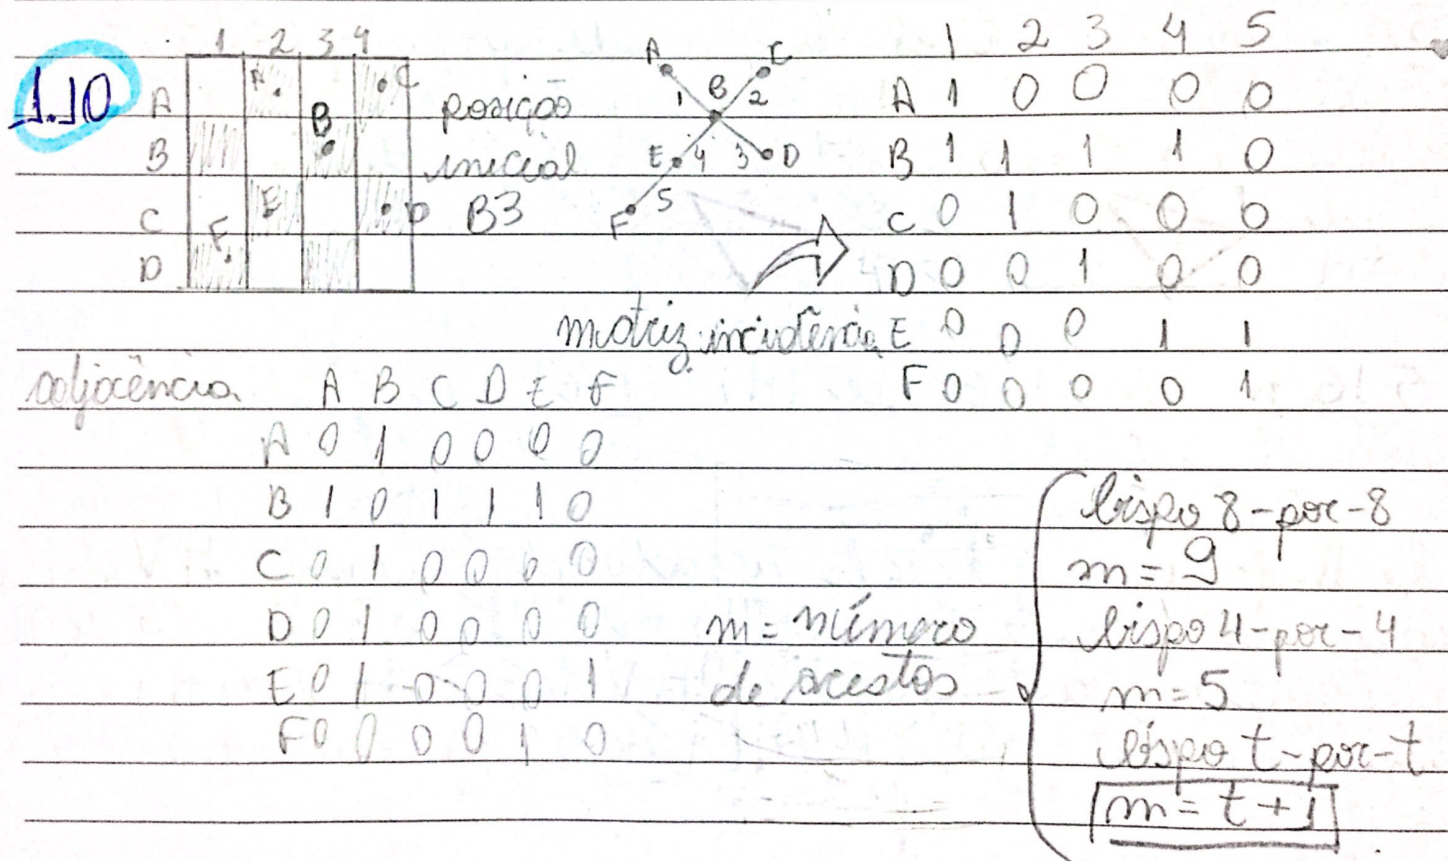 1.10
1 2 3 4
A
B
C
D
A C
B
E D
F
posição
inicial
B3
A C
1 B 2
E 4 3 D
F 5
1 2 3 4 5
A 1 0 0 0 0
B 1 1 1 1 0
C 0 1 0 0 0
D 0 0 1 0 0
matriz incidência E 0 0 0 1 1
F 0 0 0 0 1
adjacência A B C D E F
A 0 1 0 0 0 0
B 1 0 1 1 1 0
C 0 1 0 0 0 0
D 0 1 0 0 0 0
E 0 1 0 0 0 1
F 0 0 0 0 1 0
m = número
de arestas
bispo 8-por-8
m = 9
bispo 4-por-4
m = 5
bispo t-por-t
m = t + 1